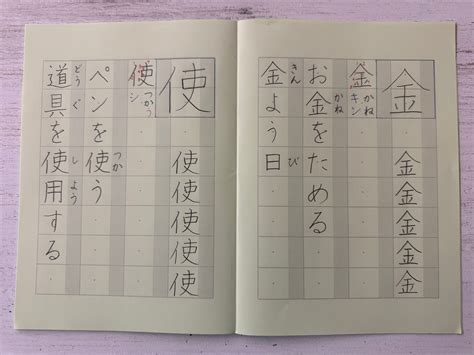 金
金
金
金
金
金
金 かね キン
お金をためる
かね
金よう日
きん び
使
使
使
使
使
使
使 つかう シ
ペンを使う
つか
道具を使用する
どうぐ しよう